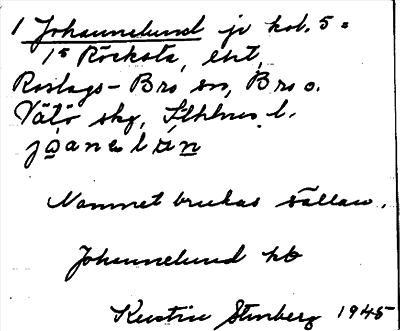 1 Johannelund jr kat. 5 =
1⁵ Röksta, ent,
Roslags-Bro sn, Bro o.
Vätö skg, Sthlms l.
Namnet brukas sällan.
Johannelund kb
Kerstin Stenberg 1945